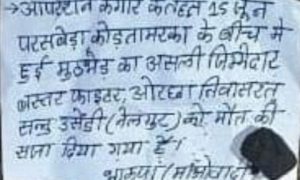 →आपरेशन कगार के तहत 25 जून
परसबेड़ा कोड़तामरका के बीच में
हुई मुठभेड़ का असली जिम्मेदार
बस्तर फाइटर, ओरछा निवासरत
सन्नु उसेंडी (नेलपुट) को मौत की
सजा दिया गया है।
भाकपा (माओवादी)